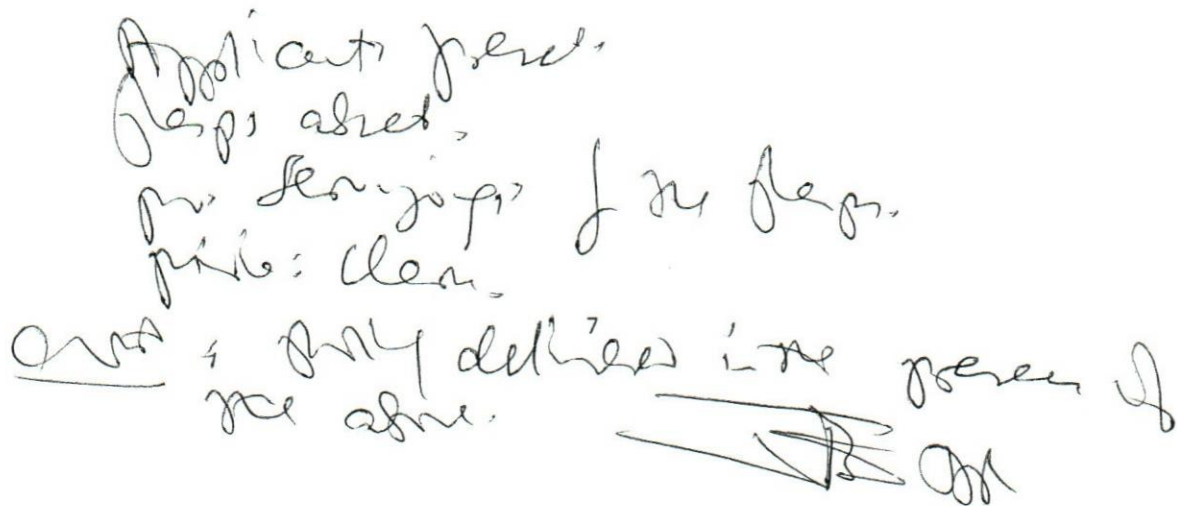 Applicant: present.
Resps absent.
for the Resps.
Clerk.
Court: Ruling delivered in the presence of
the above.